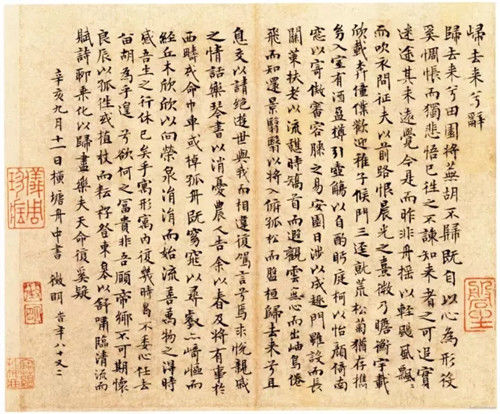 歸去来兮辭
歸去来兮田園將蕪胡不歸既自以心為形役
奚惆悵而獨悲悟已往之不諫知来者之可追實
迷途其未遠覺今是而昨非舟摇〻以輕颺風飄〻
而吹衣問征夫以前路恨晨光之熹微乃瞻衡宇載
欣載奔僮僕歡迎稚子候門三逕就荒松菊猶存攜
㓜入室有酒盈樽引壺觴以自酌眄庭柯以怡顏倚南
窓以寄傲審容膝之易安園日涉以成趣門雖設而長
關策扶老以流憩時矯首而遐觀雲無心而出岫鳥倦
飛而知還景翳〻以將入撫孤松而盤桓歸去来兮且
息交以請絕遊世與我而相違復駕言兮焉求悅親戚
之情話樂琴書以消憂農人告余以春及將有事於
西疇或命巾車或棹孤舟既窈窕以尋壑亦崎嶇而
經丘木欣欣以向榮泉涓涓而始流善萬物之得時
感吾生之行休已矣乎寓形寓内復幾時曷不委心任去
留胡為乎遑〻兮欲何之富貴非吾願帝鄉不可期懷
良辰以孤往或植杖而耘耔登東皋以舒嘯臨清流而
賦詩聊乘化以歸盡樂夫天命復奚疑
辛亥九月十一日橫塘舟中書 徵明 時年八十又二
儀周珍藏